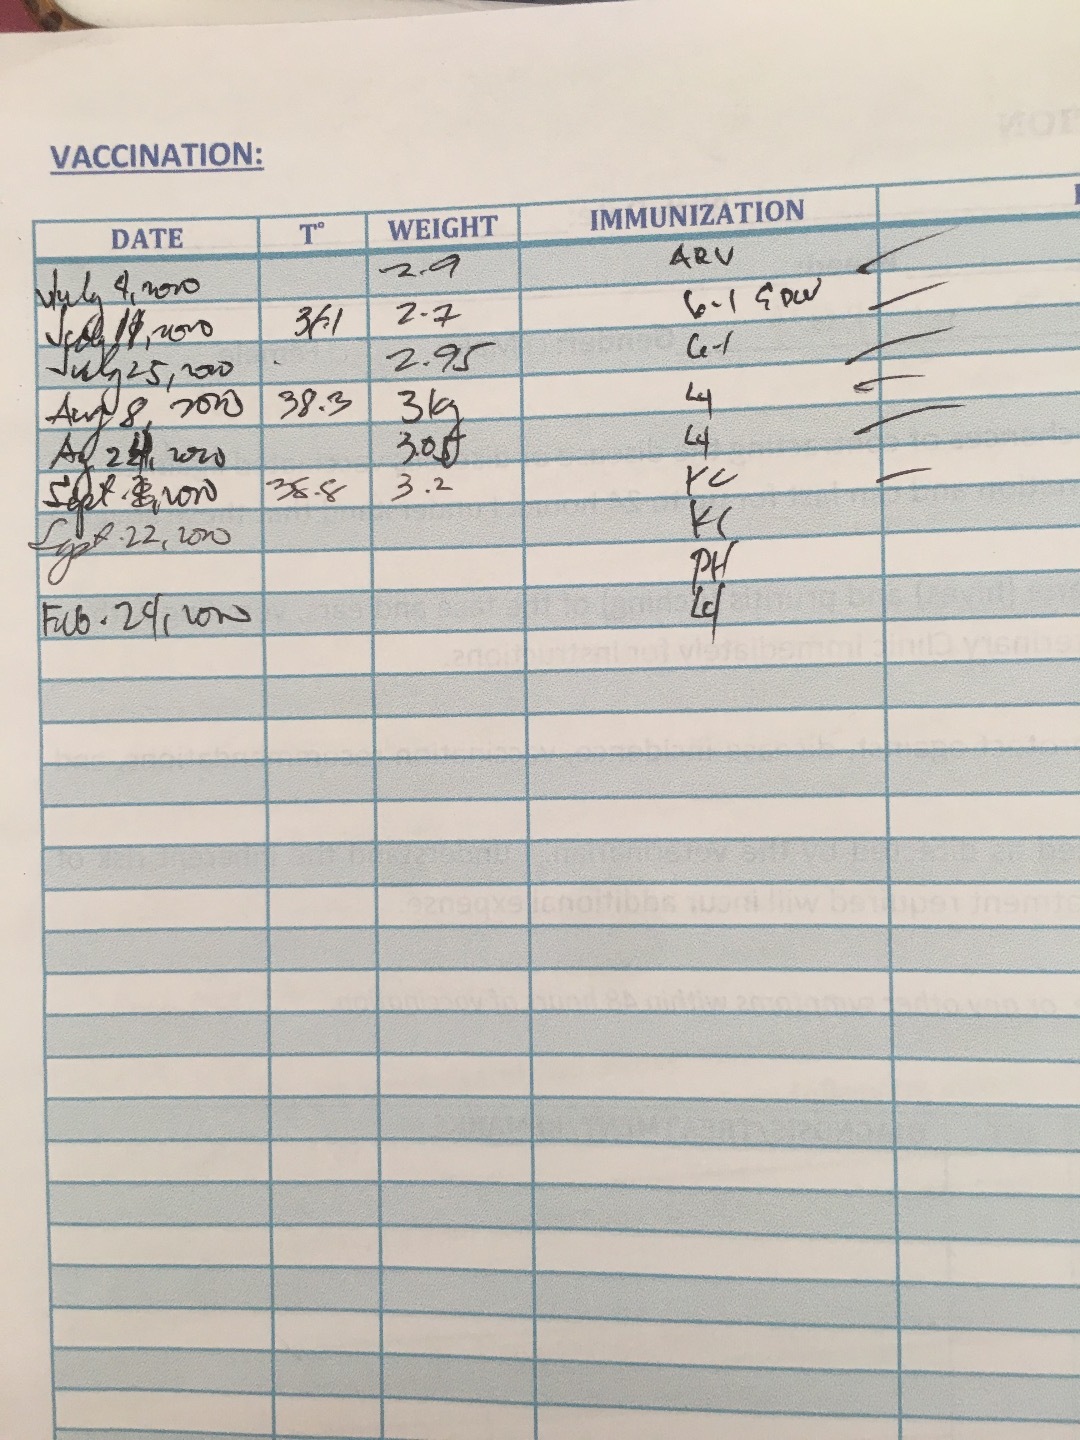 VACCINATION:
DATE T° WEIGHT IMMUNIZATION
July 4, 2020 2.9 ARV
July 11, 2020 2.7 6-1 & DW
July 25, 2020 2.95 6-1
Aug 8, 2020 38.3 3kg L4
Ag 24, 2020 3.05 L4
Sept. 2020 38.8 3.2 KC
Sept. 22, 2020 KC
PH
Feb. 24, 2020 L4